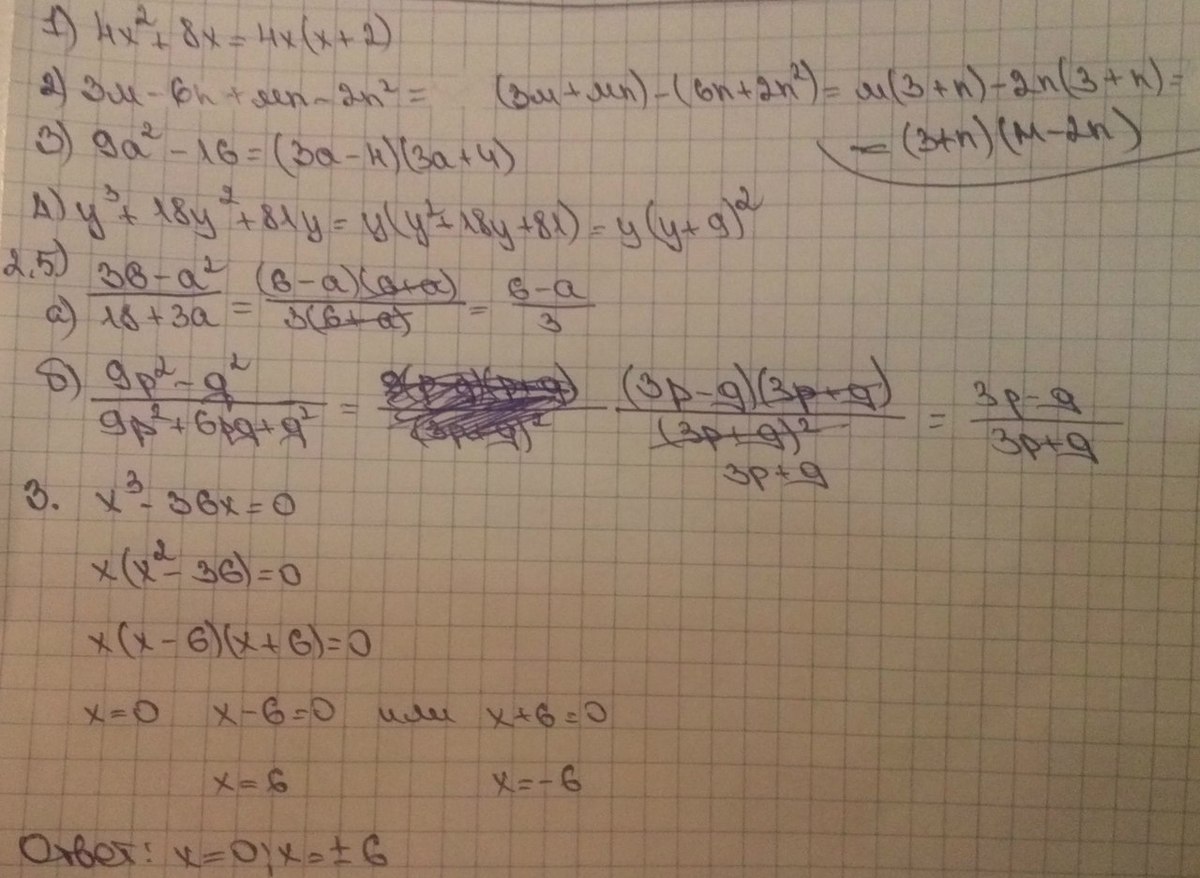 1) 4x² + 8x = 4x(x+2)
2) 3м - 6n + мn - 2n² = (3м + мn) - (6n + 2n²) = м(3+n) - 2n(3+n) =
= (3+n)(м-2n)
3) 9a² - 16 = (3a-4)(3a+4)
4) y³ + 18y² + 81y = y(y² + 18y + 81) = y(y+9)²
2.5)
а) (36 - a²)/(18 + 3a) = ((6-a)(6+a))/(3(6+a)) = (6-a)/3
б) (9p² - q²)/(9p² + 6pq + q²) = ((3p-q)(3p+q))/((3p+q)²) = (3p-q)/(3p+q)
3p+q
3. x³ - 36x = 0
x(x² - 36) = 0
x(x-6)(x+6) = 0
x=0 x-6=0 или x+6=0
x=6 x=-6
Ответ: x=0; x=±6